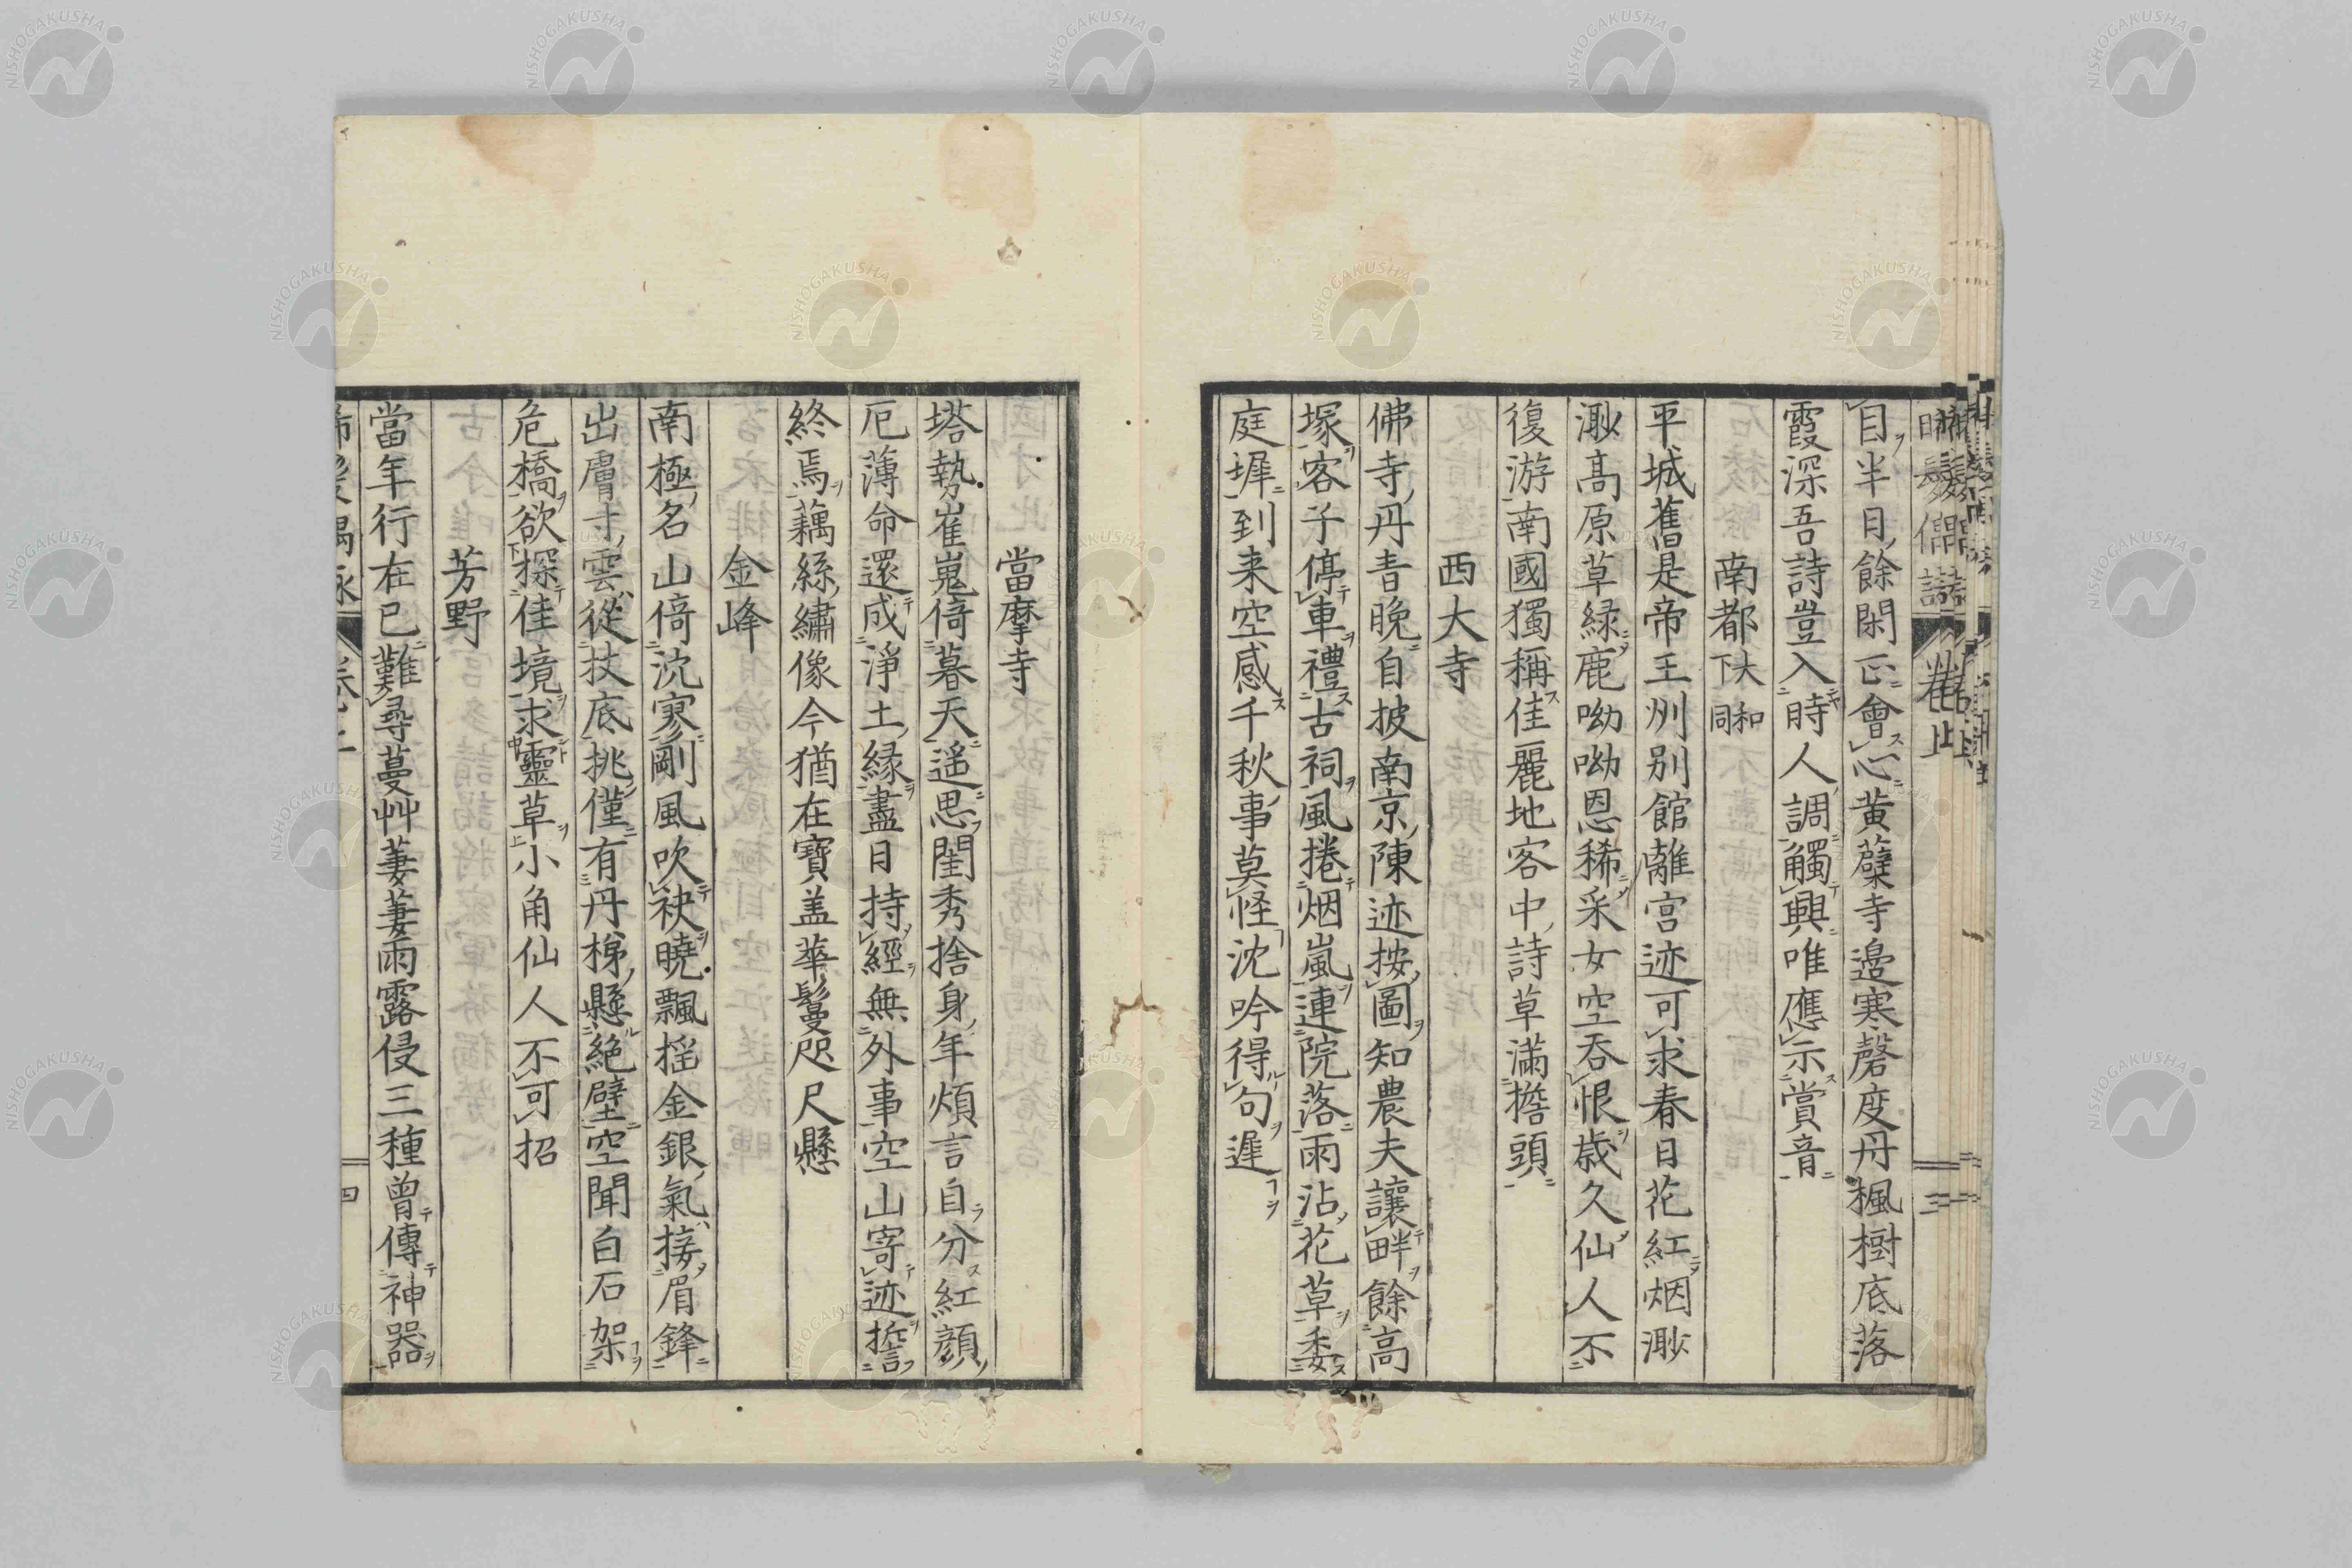 目半日餘閑正會心黄蘗寺邉寒磬度丹楓樹底落
霞深吾詩豈入時人調觸興唯應示賞音
南都大和下同
平城舊是帝王州别館離宫迹可求春日花紅烟渺
渺高原草緑鹿呦呦恩稀采女空吞恨歳久仙人不
復游南國獨稱佳麗地客中詩草滿擔頭
西大寺
佛寺丹青晚自披南京陳迹按圖知農夫讓畔餘高
塚客子停車禮古祠風捲烟嵐連院落雨沾花草委
庭墀到来空感千秋事莫怪沈吟得句遲
當摩寺
塔勢崔嵬倚暮天遥思閨秀捨身年煩言自分紅顔
厄薄命還成淨土縁盡日持經無外事空山寄迹誓
終焉藕絲繡像今猶在寶盖華鬘咫尺懸
金峰
南極名山倚沈寥剛風吹袂曉飄揺金銀氣接眉鋒
出膚寸雲從扙底挑僅有丹梯懸絶壁空聞白石架
危橋欲探佳境求靈草小角仙人不可招
芳野
當年行在已難尋蔓艸萋萋雨露侵三種曽傳神器
四
NISHOGAKUSHA